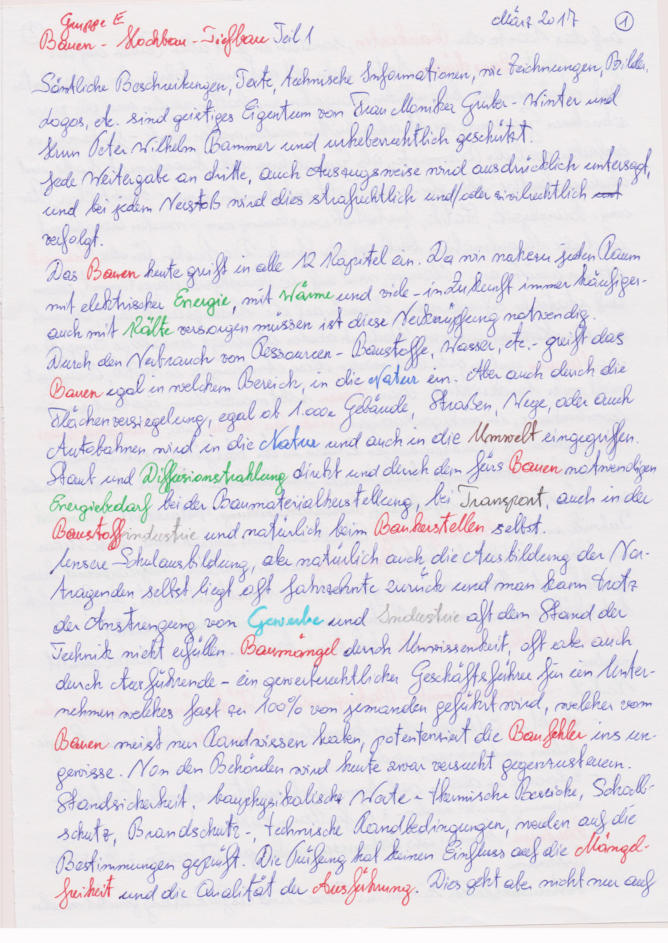 Gruppe E März 2017 1
Bauen - Hochbau - Tiefbau Teil 1
Sämtliche Beschreibungen, Texte, technische Informationen, wie Zeichnungen, Bilder,
Logos, etc. sind geistiges Eigentum von Frau Monika Gruber-Winter und
Herrn Peter Wilhelm Bammer und urheberrechtlich geschützt.
Jede Weitergabe an dritte, auch Auszugsweise wird ausdrücklich untersagt,
und bei jedem Verstoß wird dies strafrechtlich und/oder zivilrechtlich
verfolgt.
Das Bauen heute greift in alle 12 Kapitel ein. Da wir nahezu jeden Raum
mit elektrischer Energie, mit Wärme und viele - in Zukunft immer häufiger -
auch mit Kälte versorgen müssen ist diese Verknüpfung notwendig.
Durch den Verbrauch von Ressourcen - Baustoffe, Wasser, etc. - greift das
Bauen egal in welchem Bereich, in die Natur ein. Aber auch durch die
Flächenversiegelung, egal ob 1.000e Gebäude, Straßen, Wege, oder auch
Autobahnen wird in die Natur und auch in die Umwelt eingegriffen.
Staub und Diffusionstrahlung direkt und durch dem fürs Bauen notwendigen
Energiebedarf bei der Baumaterialherstellung, bei Transport, auch in der
Baustoffindustrie und natürlich beim Bauherstellen selbst.
Unsere Schulausbildung, aber natürlich auch die Ausbildung der Vor-
tragenden selbst liegt oft Jahrzehnte zurück und man kann trotz
der Anstrengung von Gewerbe und Industrie oft dem Stand der
Technik nicht erfüllen. Baumängel durch Unwissenheit, oft aber auch
durch Ausführende - ein gewerberechtlicher Geschäftsführer für ein Unter-
nehmen welches fast zu 100% von jemanden geführt wird, welcher vom
Bauen meist nur Randwissen haben, potentenziert die Baufehler ins un-
gewisse. Von den Behörden wird heute zwar versucht gegenzusteuern.
Standsicherheit, bauphysikalische Werte - thermische Bereiche, Schall-
schutz, Brandschutz -, technische Randbedingungen, werden auf die
Bestimmungen geprüft. Die Prüfung hat keinen Einfluss auf die Mängel-
freiheit und die Qualität der Ausführung. Dies geht aber nicht nur auf